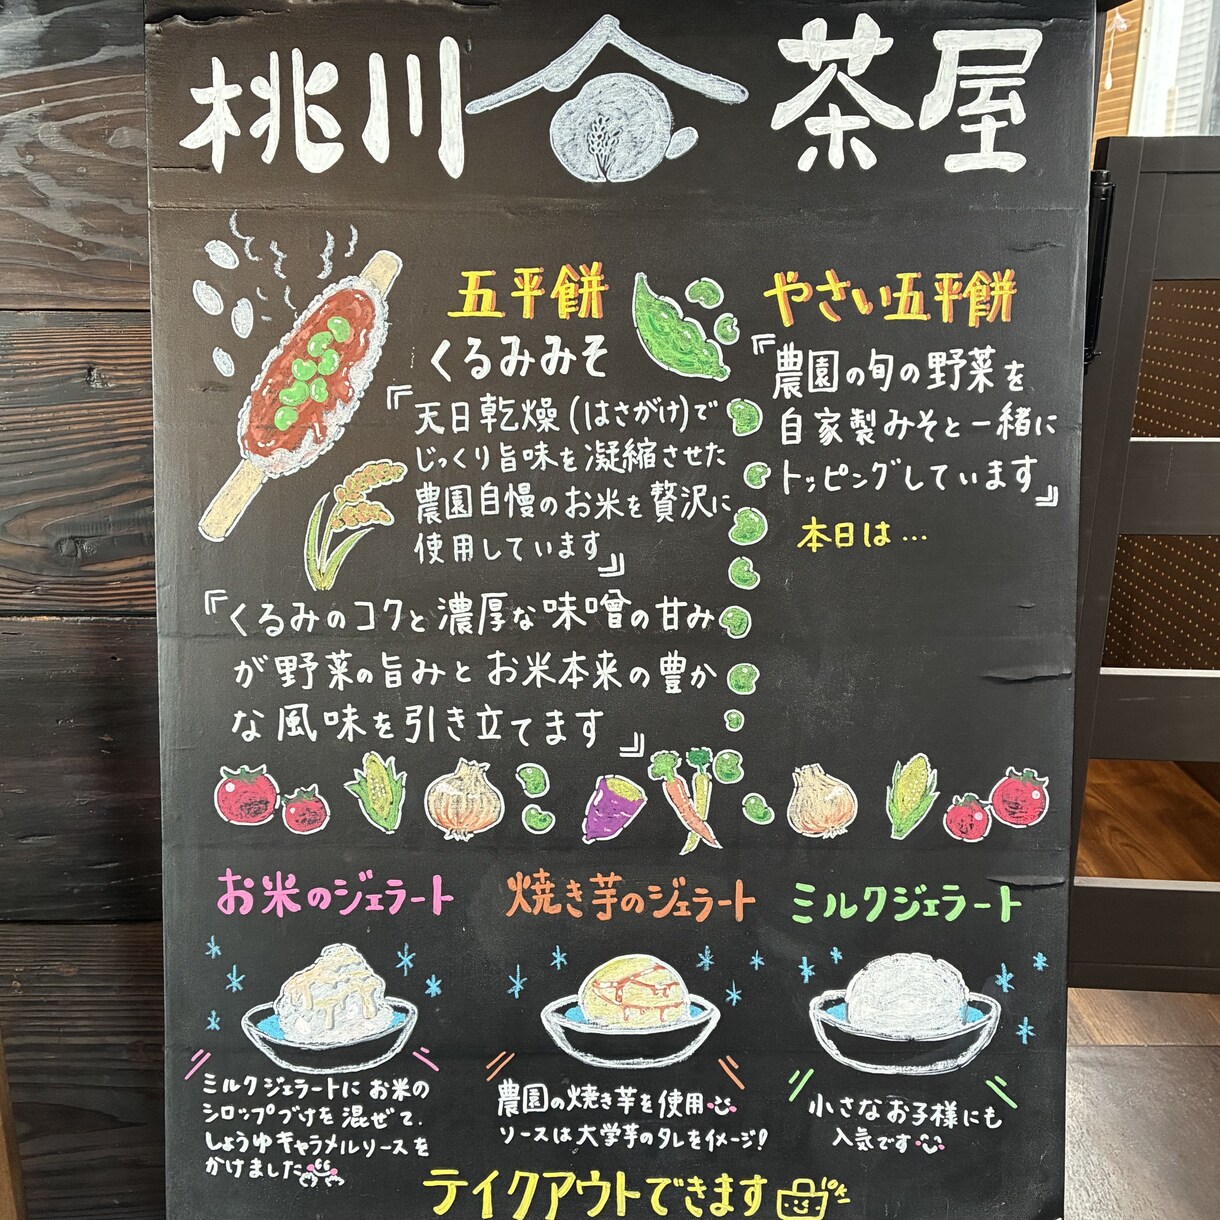 桃川茶屋
五平餅
くるみみそ
『天日乾燥(はさがけ)で
じっくり旨味を凝縮させた
農園自慢のお米を贅沢に
使用しています』
『くるみのコクと濃厚な味噌の甘み
が野菜の旨みとお米本来の豊か
な風味を引き立てます』
やさい五平餅
『農園の旬の野菜を
自家製みそと一緒に
トッピングしています』
本日は…
お米のジェラート
ミルクジェラートにお米の
シロップづけを混ぜて、
しょうゆキャラメルソースを
かけました
焼き芋のジェラート
農園の焼き芋を使用
ソースは大学芋のタレをイメージ!
ミルクジェラート
小さなお子様にも
人気です
テイクアウトできます